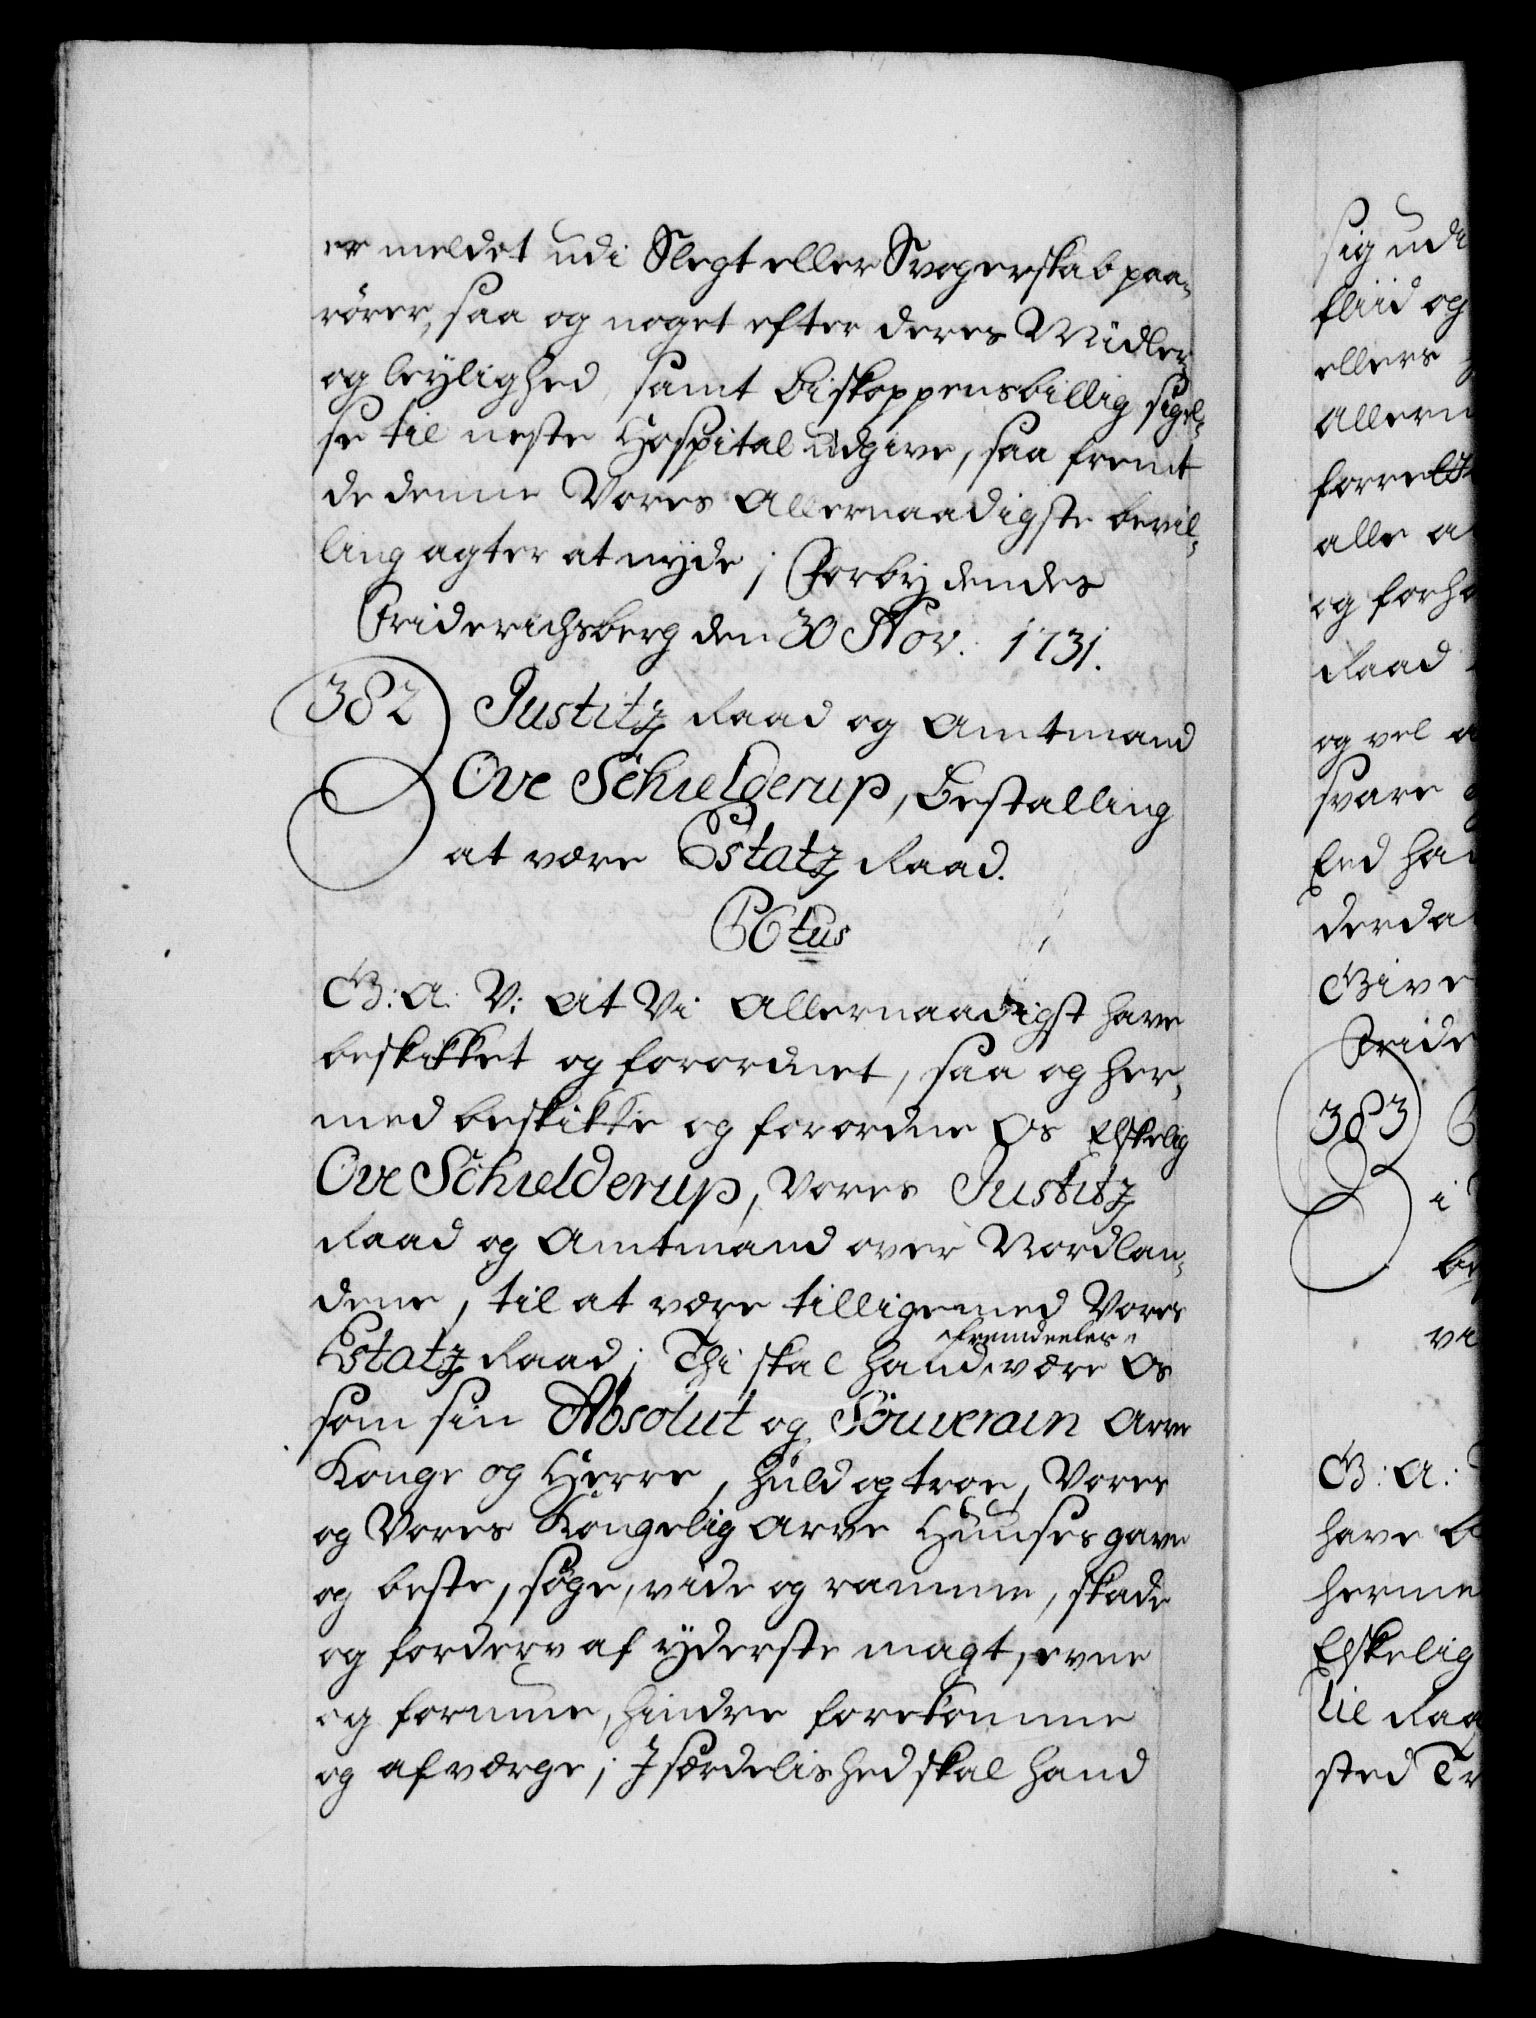 er meldet udi Slegt eller Svogerskab paa-
rører, saa og noget efter deres Midler
og leylighed, samt Biskoppens billig sigel-
se til neste Hospital udgive, saa fremt
de denne Vores Allernaadigste bevil-
ling agter at nyde; Forbydendes
Friderichsberg den 30 Nov. 1731.
382 Justitz Raad og Amtmand
Ove Schielderup, Bestalling
at være Estatz Raad.
C6tus
G: A: V: At Vi Allernaadigst have
beskikket og forordnet, saa og her-
med beskikke og forordne Os Elskelig
Ove Schielderup, Vores Justitz
Raad og Amtmand over Nordlan-
dene, til at være tillige med Vores
fremdeeles
Estatz Raad; Thi skal hand være Os
som sin Absolut og Souverain Arve
Konge og Herre, huld og troe, Vores
og Vores Kongelig Arve Huuses gavn
og beste, søge, vide og ramme, skade
og forderv af yderste magt, evne
og formue, hindre forekomme
og afværge; Jsærdelished skal hand
sig udi
fliid og
ellers
allern
forrette
alle a
og forho
Raad
og vel a
svare
Eed ha
derda
Give
Fride
383
i
be
vi
G: A:
have b
herme
Elskelig
til Raa
sted Tr